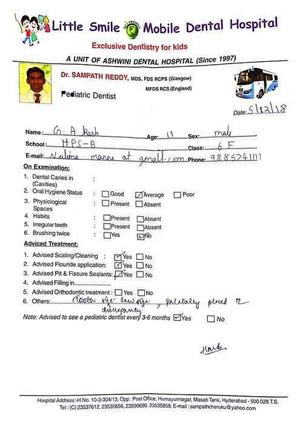 Little Smile Mobile Dental Hospital
Exclusive Dentistry for kids
A UNIT OF ASHWINI DENTAL HOSPITAL (Since 1997)
Dr. SAMPATH REDDY, MDS, FDS RCPS (Glasgow)
MFDS RCS (England)
Pediatric Dentist
Date: 5/12/18
Name: G. A Age: 11 Sex: male
School: HPS-B Class: 6 F
E-mail: at gmail.com Phone:
On Examination:
1. Dental Caries in :
(Cavities)
2. Oral Hygiene Status : Good Average Poor
3. Physiological : Present Absent
Spaces
4. Habits : Present Absent
5. Irregular teeth : Present Absent
6. Brushing twice : Yes No
Adviced Treatment:
1. Advised Scaling/Cleaning : Yes No
2. Advised Flouride application: Yes No
3. Advised Pit & Fissure Sealants: Yes No
4. Advised Filling in
5. Advised Orthodontic treatment : Yes No
6. Others: Tooth size placed
discrepancy
Note: Advised to see a pediatric dentist every 3-6 months Yes No
Hospital Address: H.No. 10-3-304/13, Opp: Post Office, Humayunnagar, Masab Tank, Hyderabad - 500 028 T.S.
Tel: (C) 23537612, 23535656, 23590690, 23535858, E-mail: sampathcheruku@yahoo.com